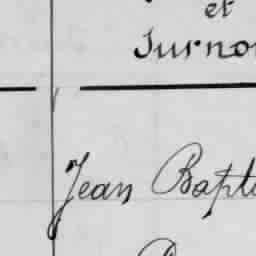 et
Surno
Jean Bapti